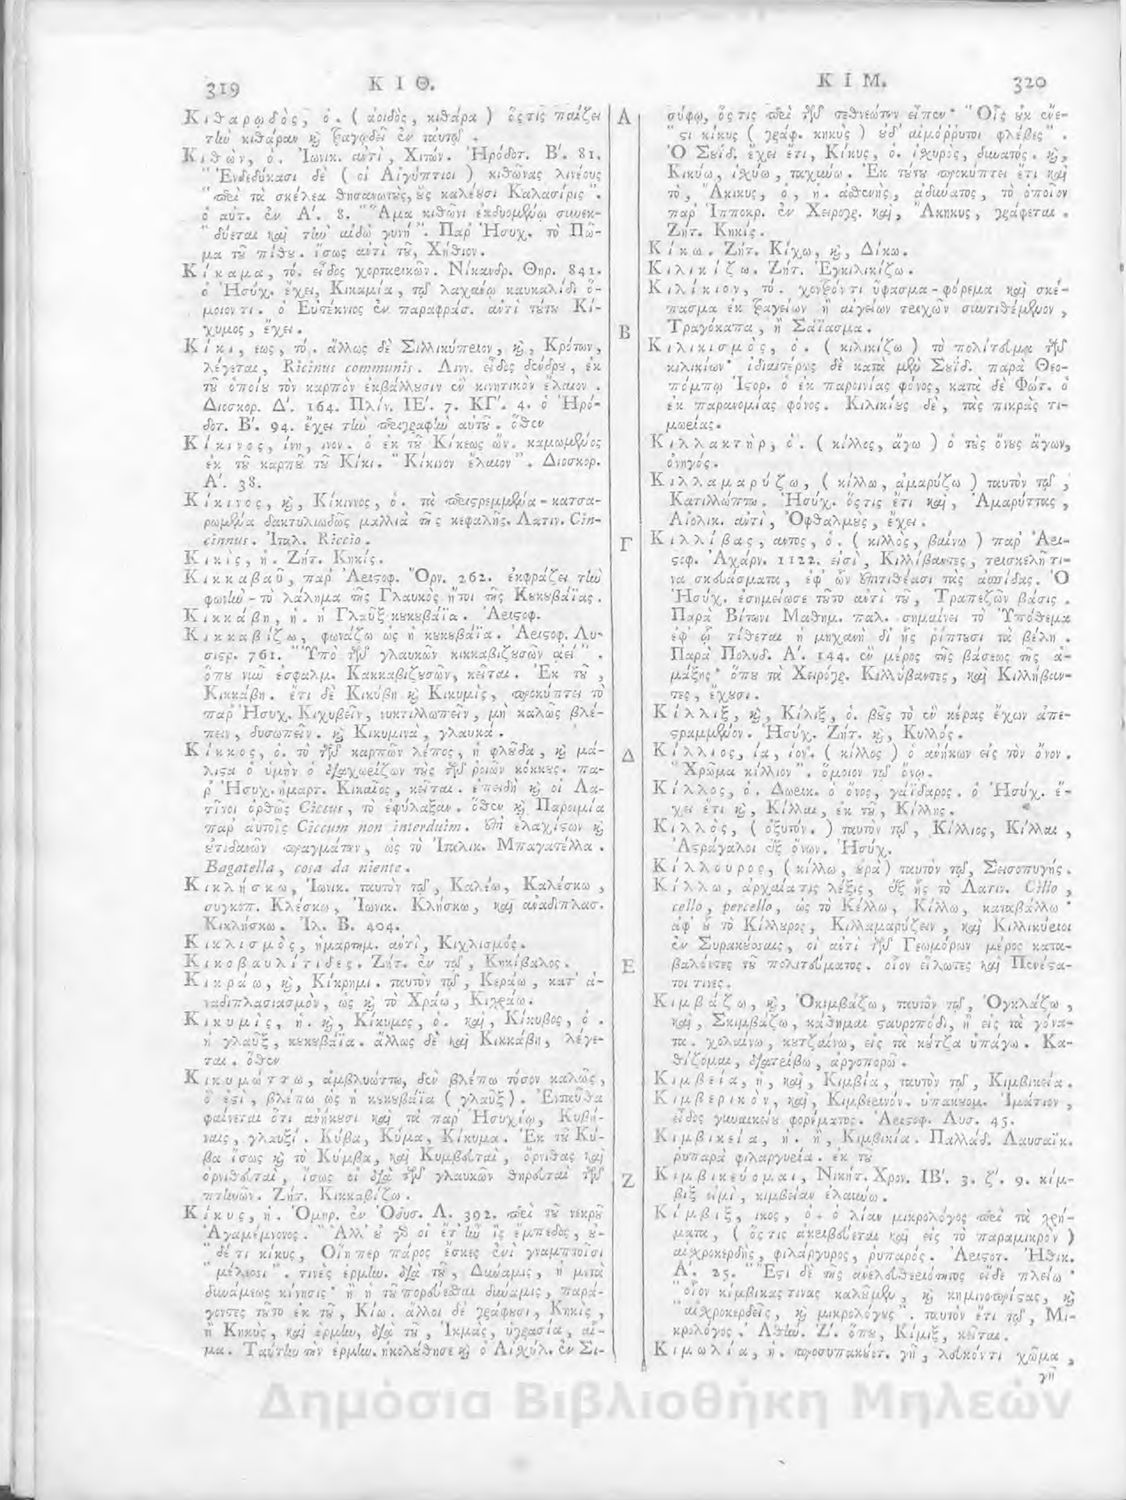 319 Κ Ι Θ.
Κιθαρῳδὸς, ὁ. ( ἀοιδὸς, κιθάρα ) ὅςτις παίζει
τὴν κιθάραν καὶ τραγῳδεῖ ἐν ταυτῷ .
Κιθὼν, ὁ. Ἰωνικ. αὐτὶ, Χιτών. Ἡρόδοτ. Β΄. 81.
" Ἐνδεδύκασι δὲ ( οἱ Αἰγύπτιοι ) κιθῶνας λινέους
" περὶ τὰ σκέλεα θυσανωτὺς, ὓς καλέουσι Καλασίρις ".
ὁ αὐτ. ἐν Α΄. 8. " Ἅμα κιθῶνι ἐκδυομένῳ συνεκ-
" δύεται καὶ τὴν αἰδῶ γυνή ". Παρ' Ἡσυχ. τὸ Πῶ-
μα τοῦ πίθου. ἴσως αὐτὶ τοῦ, Χήθιον.
Κίκαμα, τό. εἶδος χορταρικῶν. Νίκανδρ. Θηρ. 841.
ὁ Ἡσύχ. ἔχει, Κικαμία, τῷ λαχαίῳ καυκαλίδι ὅ-
μοιόν τι. ὁ Εὐτέκνιος ἐν παραφράσ. αὐτὶ τούτου Κί-
χυμος, ἔχει.
Κίκι, εως, τό. ἄλλως δὲ Σιλλικύπριον, καὶ, Κρότων,
λέγεται, Ricinus communis. Λινν. εἶδος δένδρου, ἐκ
τοῦ ὁποίου τὸν καρπὸν ἐκβάλλουσιν ἓν κινητικὸν ἔλαιον.
Διοσκορ. Δ΄. 164. Πλίν. ΙΕ΄. 7. ΚΓ΄. 4. ὁ Ἡρό-
δοτ. Β΄. 94. ἔχει τὴν περιγραφὴν αὐτοῦ. ὅθεν
Κίκινος, ίνη, ινον. ὁ ἐκ τοῦ Κίκεως ὤν. καμωμένος
ἐκ τοῦ καρποῦ τοῦ Κίκι. " Κίκινον ἔλαιον ". Διοσκορ.
Α΄. 38.
Κίκινος, καὶ, Κίκιννος, ὁ. τὰ περιςρεμμένα - κατσα-
ρωμένα δακτυλιωδῶς μαλλιὰ τῆς κεφαλῆς. Λατιν. Cin-
cinnus. Ἰταλ. Riccio.
Κικὶς, ἡ. Ζήτ. Κηκίς.
Κικκαβαῦ, παρ' Ἀριςοφ. Ὄρν. 262. ἐκφράζει τὴν
φωνὴν - τὸ λάλημα τῆς Γλαυκὸς ἤτοι τῆς Κουκουβάϊας.
Κικκάβη, ἡ. ἡ Γλαῦξ κουκουβάϊα. Ἀριςοφ.
Κικκαβίζω, φωνάζω ὡς ἡ κουκουβάϊα. Ἀριςοφ. Λυ-
σιςρ. 761. " Ὑπὸ τῶν γλαυκῶν κικκαβιζουσῶν ἀεί " .
ὅπου νῦν ἐσφαλμ. Κακκαβιζουσῶν, κεῖται. Ἐκ τοῦ,
Κικκάβη. ἔτι δὲ Κικύβη καὶ Κικυμὶς, προκύπτει τὸ
παρ' Ἡσυχ. Κιχυβεῖν, νυκτιλλωπεῖν, μὴ καλῶς βλέ-
πειν, δυσωπεῖν. καὶ Κικυμινὰ, γλαυκά.
Κίκκος, ὁ. τὸ τῶν καρπῶν λέπος, ἡ φλοῦδα, καὶ μά-
λιςα ὁ ὑμὴν ὁ διαχωρίζων τοὺς τῶν ῥοιῶν κόκκους. πα-
ρ' Ἡσυχ. ἡμαρτ. Κικαῖος, κεῖται. ἐπειδὴ καὶ οἱ Λα-
τῖνοι ὀρθῶς Ciccus, τὸ ἐφύλαξαν. ὅθεν καὶ Παροιμία
παρ' αὐτοῖς Ciccum non interduim. ἐπὶ ἐλαχίςων καὶ
οὐτιδανῶν πραγμάτων, ὡς τὸ Ἰταλικ. Μπαγατέλλα.
Bagatella, cosa da niente.
Κικλήσκω, Ἰωνικ. ταυτὸν τῷ, Καλέω, Καλέσκω,
συγκοπ. Κλέσκω, Ἰωνικ. Κλήσκω, καὶ ἀναδιπλασ.
Κικλήσκω. Ἰλ. Β. 404.
Κικλισμὸς, ἡμαρτημ. αὐτὶ, Κιχλισμός.
Κικοβαυλίτιδες. Ζήτ. ἐν τῷ, Κηκίβαλος.
Κικράω, καὶ, Κίκρημι. ταυτὸν τῷ, Κεράω, κατ' ἀ-
ναδιπλασιασμὸν, ὡς καὶ τὸ Χράω, Κιχράω.
Κικυμὶς, ἡ. καὶ, Κίκυμος, ὁ. καὶ, Κίκυβος, ὁ.
ἡ γλαῦξ, κουκουβάϊα. ἄλλως δὲ καὶ Κικκάβη, λέγε-
ται. ὅθεν
Κικυμώττω, ἀμβλυώττω, δὲν βλέπω τόσον καλῶς,
ὅ ἐςὶ, βλέπω ὡς ἡ κουκουβάϊα ( γλαῦξ ). Ἐνταῦθα
φαίνεται ὅτι ἀνήκουσι καὶ τὰ παρ' Ἡσυχίῳ, Κυβή-
ναις, γλαυξί. Κύβα, Κύμα, Κίκυμα. Ἐκ τοῦ Κύ-
βα ἴσως καὶ τὸ Κύμβα, καὶ Κυμβευταὶ, ὄρνιθας καὶ
ὀρνιθευταὶ, ἴσως οἱ διὰ τῶν γλαυκῶν θηρευταὶ τῶν
πτηνῶν. Ζήτ. Κικκαβίζω.
Κίκυς, ἡ. Ὁμηρ. ἐν Ὀδυσ. Λ. 392. περὶ τοῦ νεκροῦ
Ἀγαμέμνονος. " Ἀλλ' οὐ γάρ οἱ ἔτ' ἦν ἲς ἔμπεδος, οὐ-
" δέ τι κίκυς, Οἵη περ πάρος ἔσκεν ἐνὶ γναμπτοῖσι
" μέλεσσι ". τινὲς ἑρμην. διὰ τοῦ, Δύναμις, ἡ μετὰ
δυνάμεως κίνησις· ἢ ἡ τοῦ πορεύεσθαι δύναμις, παρά-
γοντες τοῦτο ἐκ τοῦ, Κίω. ἄλλοι δὲ γράφουσι, Κηκὶς,
ἢ Κηκὺς, καὶ ἑρμην. διὰ τοῦ, Ἰκμὰς, ὑγρασία, αἷ-
μα. Ταύτην τὴν ἑρμην. ἠκολούθησε καὶ ὁ Αἰσχύλ. ἐν Σι-
Α
Β
Γ
Δ
Ε
Ζ
Κ Ι Μ. 320
σύφῳ, ὅςτις περὶ τῶν τεθνεώτων εἶπεν· " Οἷς οὐκ ἔνε-
" ςι κίκυς ( γράφ. κηκὺς ) οὐδ' αἱμόρρυτοι φλέβες ".
Ὁ Σουΐδ. ἔχει ἔτι, Κίκυς, ὁ. ἰσχυρὸς, δυνατός. καὶ,
Κικύω, ἰσχύω, ταχύνω. Ἐκ τούτου προκύπτει ἔτι καὶ
τὸ, Ἄκικυς, ὁ, ἡ. ἀσθενὴς, ἀδύνατος, τὸ ὁποῖον
παρ' Ἱπποκρ. ἐν Χειρογρ. καὶ, Ἄκηκυς, γράφεται.
Ζήτ. Κηκίς.
Κίκω. Ζήτ. Κίχω, καὶ, Δίκω.
Κιλικίζω. Ζήτ. Ἐγκιλικίζω.
Κιλίκιον, τό. χονδρόν τι ὕφασμα - φόρεμα καὶ σκέ-
πασμα ἐκ τραγείων ἢ αἰγείων τριχῶν συντιθέμενον,
Τραγόκαπα, ἢ Σάϊασμα.
Κιλικισμὸς, ὁ. ( κιλικίζω ) τὸ πολίτευμα τῶν
κιλικίων· ἰδιαιτέρως δὲ κατὰ μὲν Σουΐδ. παρὰ Θεο-
πόμπῳ Ἱςορ. ὁ ἐκ παροινίας φόνος, κατὰ δὲ Φώτ. ὁ
ἐκ παρανομίας φόνος. Κιλικίους δὲ, τὰς πικρὰς τι-
μωρίας.
Κιλλακτὴρ, ὁ. ( κίλλος, ἄγω ) ὁ τοὺς ὄνους ἄγων,
ὀνηγός.
Κιλλαμαρύζω, ( κίλλω, ἀμαρύζω ) ταυτὸν τῷ,
Κατιλλώπτω. Ἡσύχ. ὅςτις ἔτι καὶ, Ἀμαρύττας,
Αἰολικ. αὐτὶ, Ὀφθαλμοὺς, ἔχει.
Κιλλίβας, αντος, ὁ. ( κιλλὸς, βαίνω ) παρ' Ἀρι-
ςοφ. Ἀχάρν. 1122. εἰσὶ, Κιλλίβαντες, τρισκελῆ τι-
να σκευάσματα, ἐφ' ὧν ἐπιτιθέασι τὰς ἀσπίδας. Ὁ
Ἡσύχ. ἐσημείωσε τοῦτο αὐτὶ τοῦ, Τραπεζῶν βάσις.
Παρὰ Βίτωνι Μαθημ. παλ. σημαίνει τὸ Ὑπόθεμα
ἐφ' ᾧ τίθεται ἡ μηχανὴ δι' ἧς ῥίπτουσι τὰ βέλη.
Παρὰ Πολυδ. Α΄. 144. ἓν μέρος τῆς βάσεως τῆς ἁ-
μάξης· ὅπου τὰ Χειρόγρ. Κιλλύβαντες, καὶ Κιλλήβαν-
τες, ἔχουσι.
Κίλλιξ, καὶ, Κίλιξ, ὁ. βοῦς τὸ ἓν κέρας ἔχων ἀπε-
ςραμμένον. Ἡσύχ. Ζήτ. καὶ, Κυλλός.
Κίλλιος, ία, ιον. ( κίλλος ) ὁ ἀνήκων εἰς τὸν ὄνον.
" Χρῶμα κίλλιον ". ὅμοιον τῷ ὄνῳ.
Κίλλος, ὁ. Δωρικ. ὁ ὄνος, γάϊδαρος. ὁ Ἡσύχ. ἔ-
χει ἔτι καὶ, Κίλλαι, ἐκ τοῦ, Κίλλης.
Κιλλὸς, ( ὀξυτόν. ) ταυτὸν τῷ, Κίλλιος, Κίλλαι,
Ἀςράγαλοι ἐξ ὄνων. Ἡσύχ.
Κίλλουρος, ( κίλλω, οὐρὰ ) ταυτὸν τῷ, Σεισοπυγής.
Κίλλω, ἀρχαία τις λέξις, ἐξ ἧς τὸ Λατιν. Cillo,
cello, percello, ὡς τὸ Κέλλω, Κίλλω, καταβάλλω·
ἀφ' οὗ τὸ Κίλλυρος, Κιλλαμαρύζειν, καὶ Κιλλικύριοι
ἐν Συρακούσαις, οἱ αὐτὶ τῶν Γεωμόρων μέρος κατα-
βαλόντες τοῦ πολιτεύματος. οἷον εἵλωτες καὶ Πενέςα-
τοί τινες.
Κιμβάζω, καὶ, Ὀκιμβάζω, ταυτὸν τῷ, Ὀγκλάζω,
καὶ, Σκιμβάζω, κάθημαι ςαυροπόδι, ἢ εἰς τὰ γόνα-
τα. χολαίνω, κουτζαίνω, εἰς τὰ κουτζὰ ὑπάγω. Κα-
θίζομαι, διατρίβω, ἀργοπορῶ.
Κιμβεία, ἡ, καὶ, Κιμβία, ταυτὸν τῷ, Κιμβικεία.
Κιμβερικὸν, καὶ, Κιμβερινόν. ὑπακουομ. Ἱμάτιον,
εἶδος γυναικείου φορέματος. Ἀριςοφ. Λυσ. 45.
Κιμβικεία, ἡ. ἢ, Κιμβικία. Παλλάδ. Λαυσαϊκ.
ῥυπαρὰ φιλαργυρία. ἐκ τοῦ
Κιμβικεύομαι, Νικήτ. Χρον. ΙΒ΄. 3. ζ΄. 9. κίμ-
βιξ εἰμὶ, κιμβείαν ἐλαύνω.
Κίμβιξ, ικος, ὁ. ὁ λίαν μικρολόγος περὶ τὰ χρή-
ματα, ( ὅςτις ἀκριβεύεται καὶ εἰς τὸ παραμικρὸν )
αἰσχροκερδὴς, φιλάργυρος, ῥυπαρός. Ἀριςοτ. Ἠθικ.
Α΄. 25. " Ἔςι δὲ τῆς ἀνελευθεριότητος εἴδε πλείω·
" οἷον κίμβικάς τινας καλοῦμεν, καὶ κημινοπρίςας, καὶ
" αἰσχροκερδεῖς, καὶ μικρολόγους ". ταυτὸν ἔτι τῷ, Μι-
κρολόγος. Ἀθήν. Ζ΄. ὅπου, Κίμιξ, κεῖται.
Κιμωλία, ἡ. προσυπακούετ. γῆ, λευκόν τι χῶμα,
γῆ
Δημόσια Βιβλιοθήκη Μηλεών